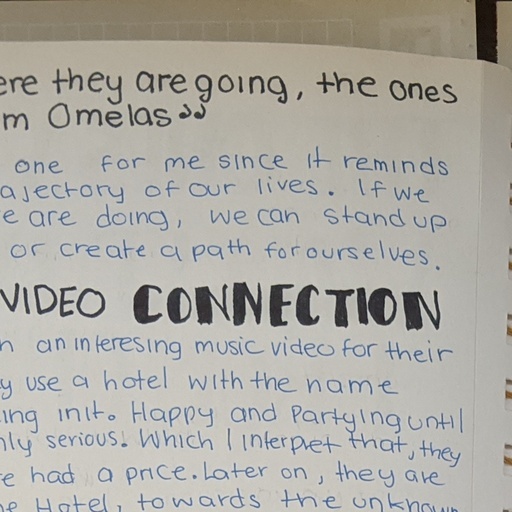 ere they are going, the ones
m Omelas"
one for me since it reminds
ajectory of our lives. If we
e are doing, we can stand up
or create a path for ourselves.
VIDEO CONNECTION
n an interesing music video for their
y use a hotel with the name
ing in it. Happy and Partying until
nly serious. Which I interpret that, they
e had a price. Later on, they are
he Hotel, towards the unknown